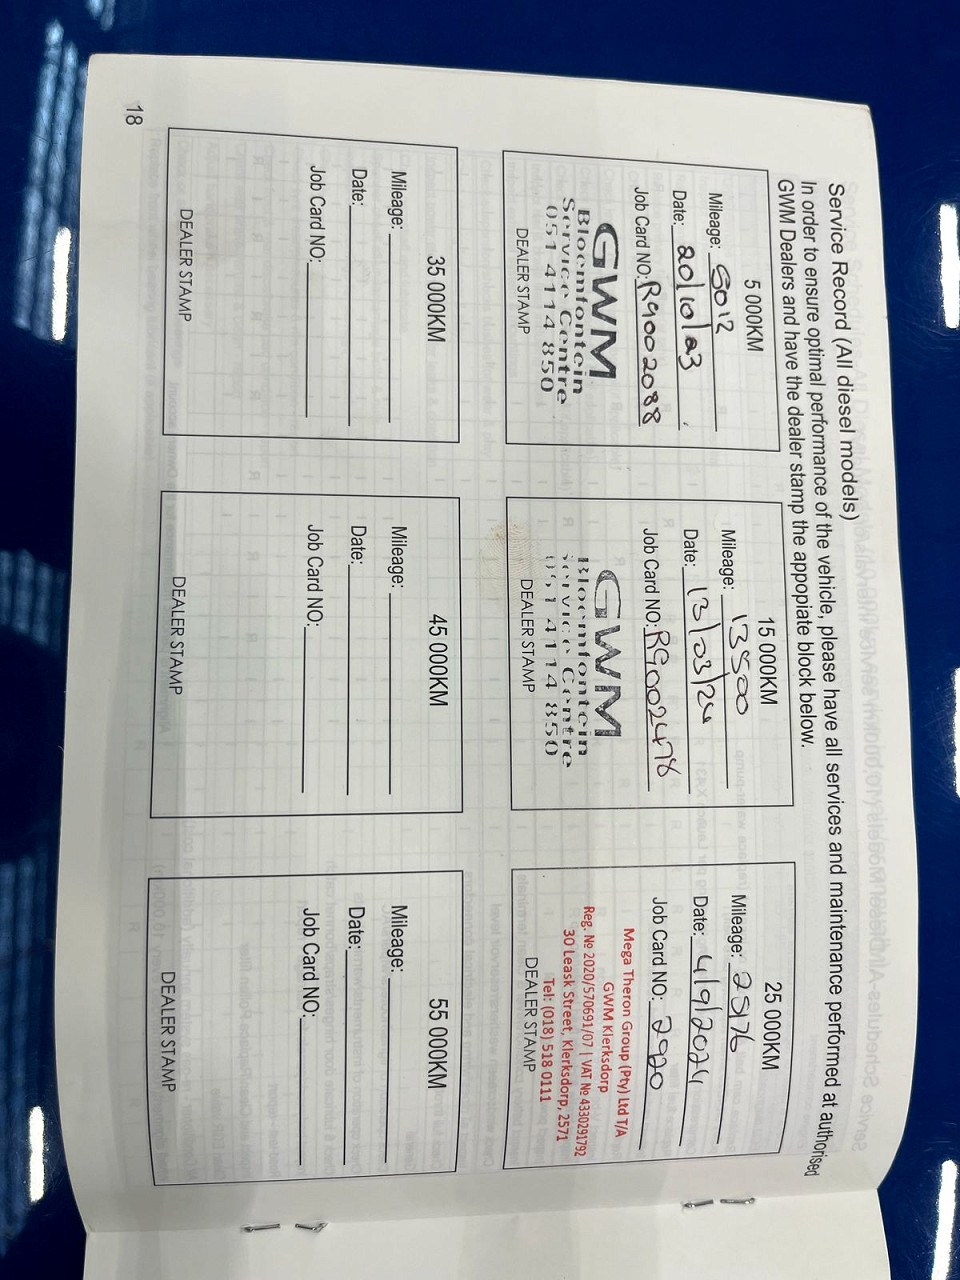 Service Record (All diesel models)
In order to ensure optimal performance of the vehicle, please have all services and maintenance performed at authorised
GWM Dealers and have the dealer stamp the appopiate block below.
5 000KM
Mileage: 5012
Date: 20/10/23
Job Card NO: R9002088
GWM
Bloemfontein
Service Centre
051 4114 850
DEALER STAMP
15 000KM
Mileage: 13500
Date: 13/03/24
Job Card NO: RG002478
GWM
Bloemfontein
Service Centre
051 4114 850
DEALER STAMP
25 000KM
Mileage: 25176
Date: 4/9/2024
Job Card NO: 2920
Mega Theron Group (Pty) Ltd T/A
GWM Klerksdorp
Reg. № 2020/570691/07 | VAT № 4330291792
30 Leask Street, Klerksdorp, 2571
Tel: (018) 518 0111
DEALER STAMP
35 000KM
Mileage:
Date:
Job Card NO:
DEALER STAMP
45 000KM
Mileage:
Date:
Job Card NO:
DEALER STAMP
55 000KM
Mileage:
Date:
Job Card NO:
DEALER STAMP
18